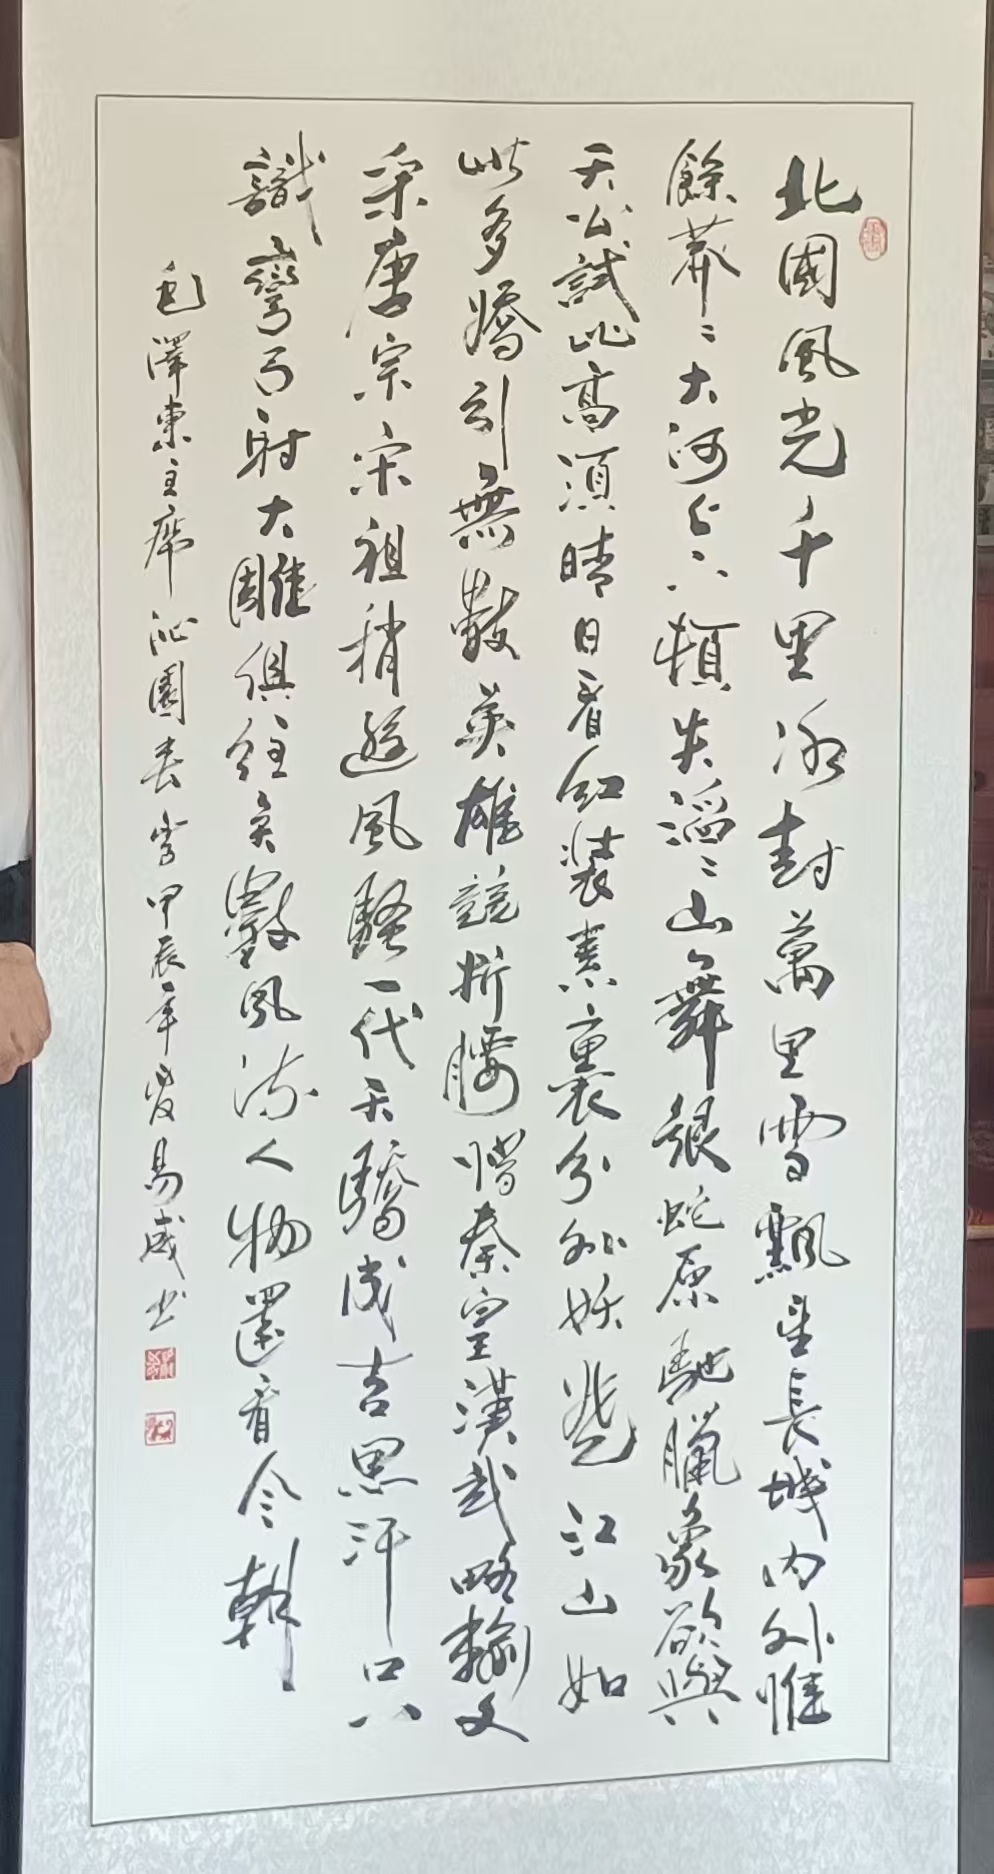 北國風光千里冰封萬里雪飄望長城内外惟
餘莽〻大河上下頓失滔〻山舞銀蛇原馳臘象欲與
天公試比高須晴日看紅裝素裹分外妖嬈江山如
此多嬌引無數英雄競折腰惜秦皇漢武略輸文
采唐宗宋祖稍遜風騷一代天驕成吉思汗只
識彎弓射大雕俱往矣數風流人物還看今朝
毛澤東主席沁園春雪甲辰年夏易书